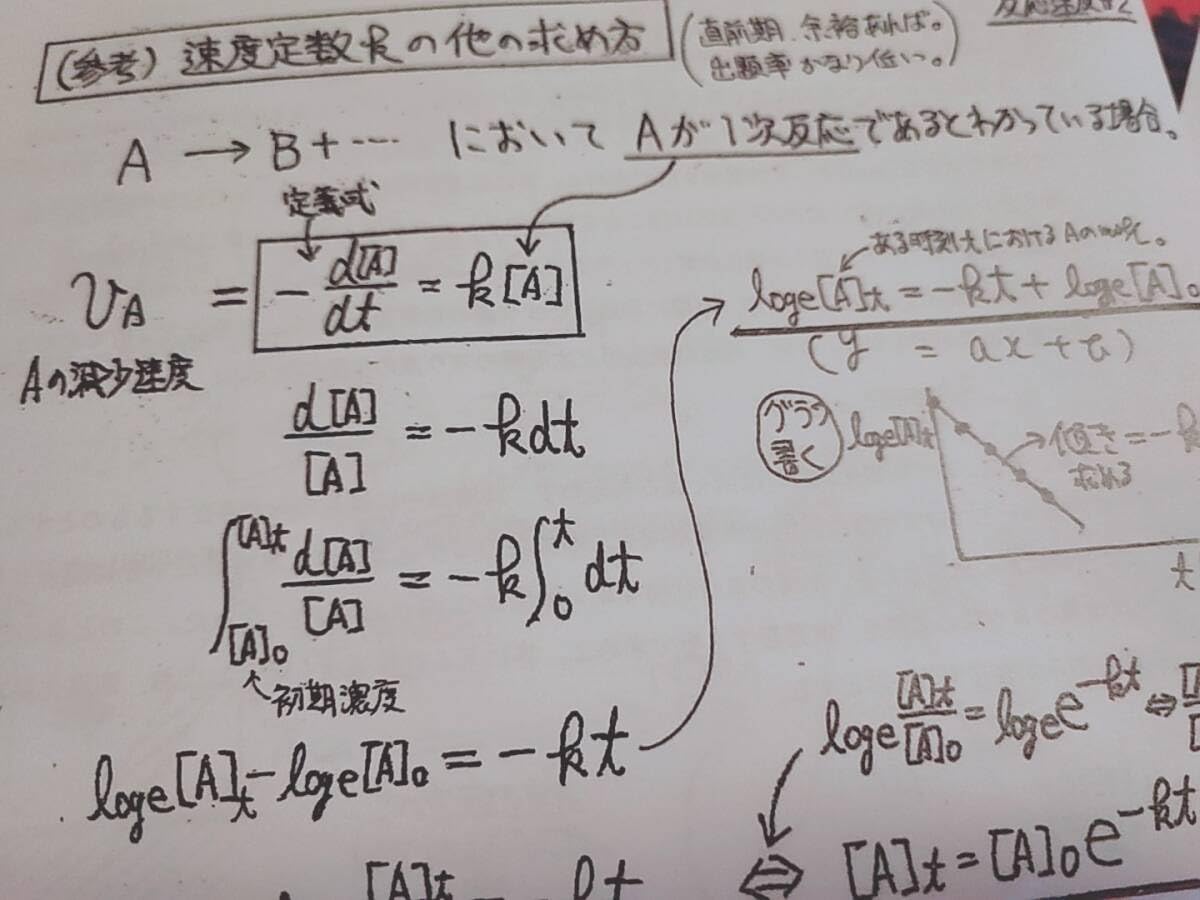 (参考) 速度定数kの他の求め方
(直前期、余裕あれば。
出題率かなり低い。)
反応速度#2
A → B + ···· において Aが1次反応であるとわかっている場合。
定義式
v_A = -d[A]/dt = k[A]
Aの減少速度
d[A]/[A] = -kdt
∫_{[A]0}^{[A]t} d[A]/[A] = -k∫_0^t dt
初期濃度
loge[A]t - loge[A]0 = -kt
[A]t
ある時刻tにおけるAの
loge[A]t = -kt + loge[A]0
(y = ax + b)
グラフ
書く
loge[A]t
傾き = -k
求める
t
loge [A]t/[A]0 = loge e^{-kt} ⇔
⇔ [A]t = [A]0 e^{-kt}